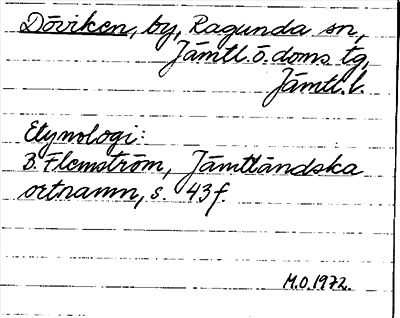 Döviken, by, Ragunda sn,
Jämtl. ö. doms tg,
Jämtl. l.
Etymologi:
B. Flemström, Jämtländska
ortnamn, s. 43 f.
M.O. 1972.